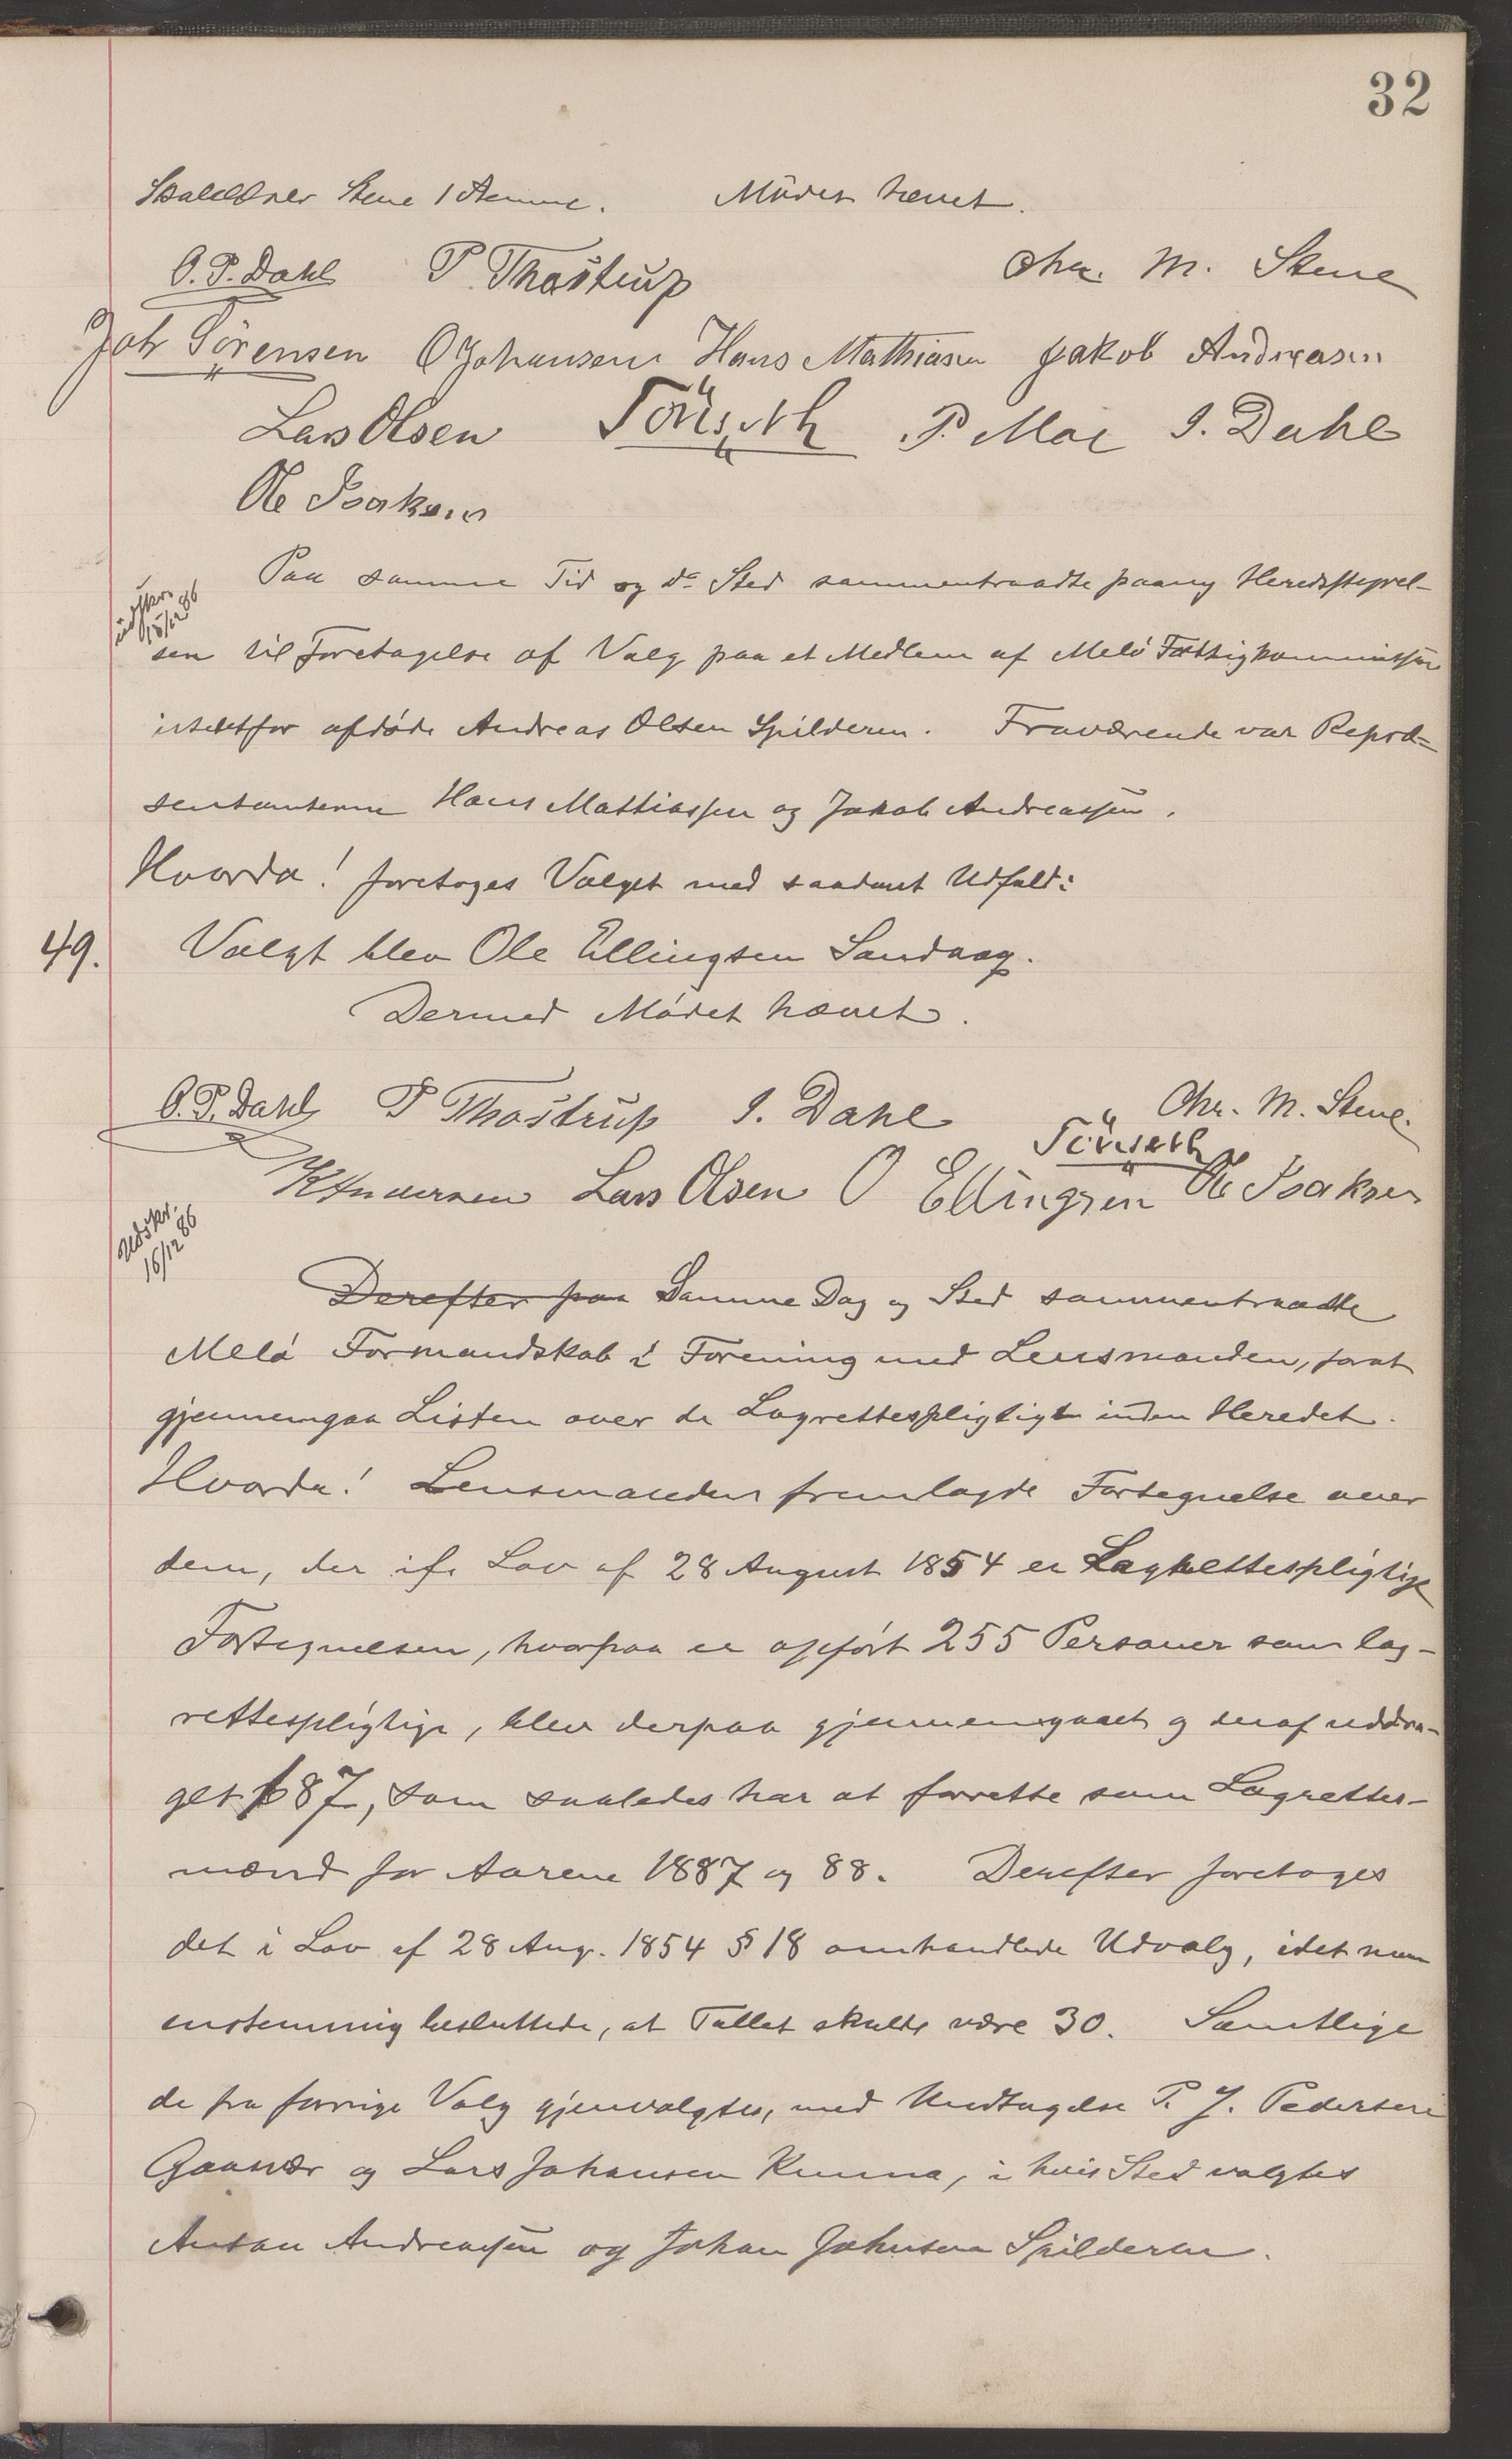 32
Skoleelver Stene 1 Stemme. Mödet hævet.
O. P. Dahl P Thostrup Chr. M. Stene
Joh Sörensen O Johansen Hans Mathiasen Jakob Andreasen
Lars Olsen Tönseth P. Moe I. Dahl
Ole Isaksen
Paa samme Tid og do Sted sammentraadte paany Heredsstyrel-
udskr. 15/12 86
sen til Foretagelse af Valg paa et Medlem af Melö Fattigkommission
istedetfor afdöde Andreas Olsen Spilderen. Fraværende var Repræ=
sentanterne Hans Mathiassen og Jakob Andreassen.
Hvorda! foretoges Valget med saadant Udfald:
49. Valgt blev Ole Ellingsen Sandvaag.
Dermed Mödet hævet.
O. P. Dahl P Thostrup I. Dahl Chr. M. Stene.
Tönseth
Andersen Lars Olsen O Ellingsen Ole Isaksen
Udskr. 16/12 86
Derefter paa Samme Dag og Sted sammentraadte
Melö Formandskab i Forening med Lensmanden, forat
gjennemgaa Listen over de Lagrettespligtige inden Heredet.
Hvorda! Lensmanden fremlagde Fortegnelse over
dem, der ifr Lov af 28 August 1854 er Lagrettespligtige
Fortegnelsen, hvorpaa er opfört 255 Personer som lag-
rettespligtige, blev derpaa gjennemgaaet og deraf uddra-
get 87, som saaledes har at forrette som Lagrettes-
mænd for Aarene 1887 og 88. Derefter foretoges
det i Lov af 28 Aug. 1854 § 18 omhandlede Udvalg, idet man
enstemmig besluttede, at Tallet skulde være 30. Samtlige
de fra forrige Valg gjenvalgtes, med Undtagelse P. J. Pedersen
Gaasvær og Lars Johansen Kunna, i hvis Sted valgtes
Anton Andreassen og Johan Johnsen Spilderen.